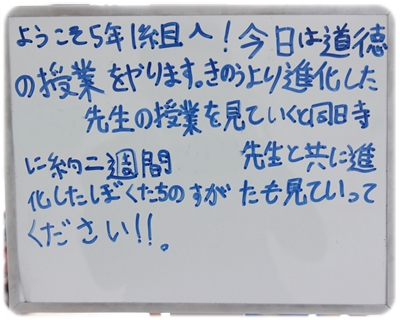 ようこそ5年1組へ!今日は道徳
の授業をやります。きのうより進化した
先生の授業を見ていくと同時
に約二週間 先生と共に進
化したしぼくたちのすがたも見ていって
ください!!。